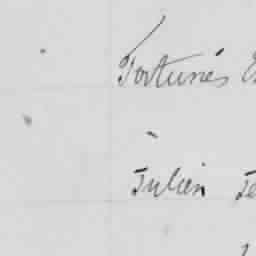 Fortunés
Julien